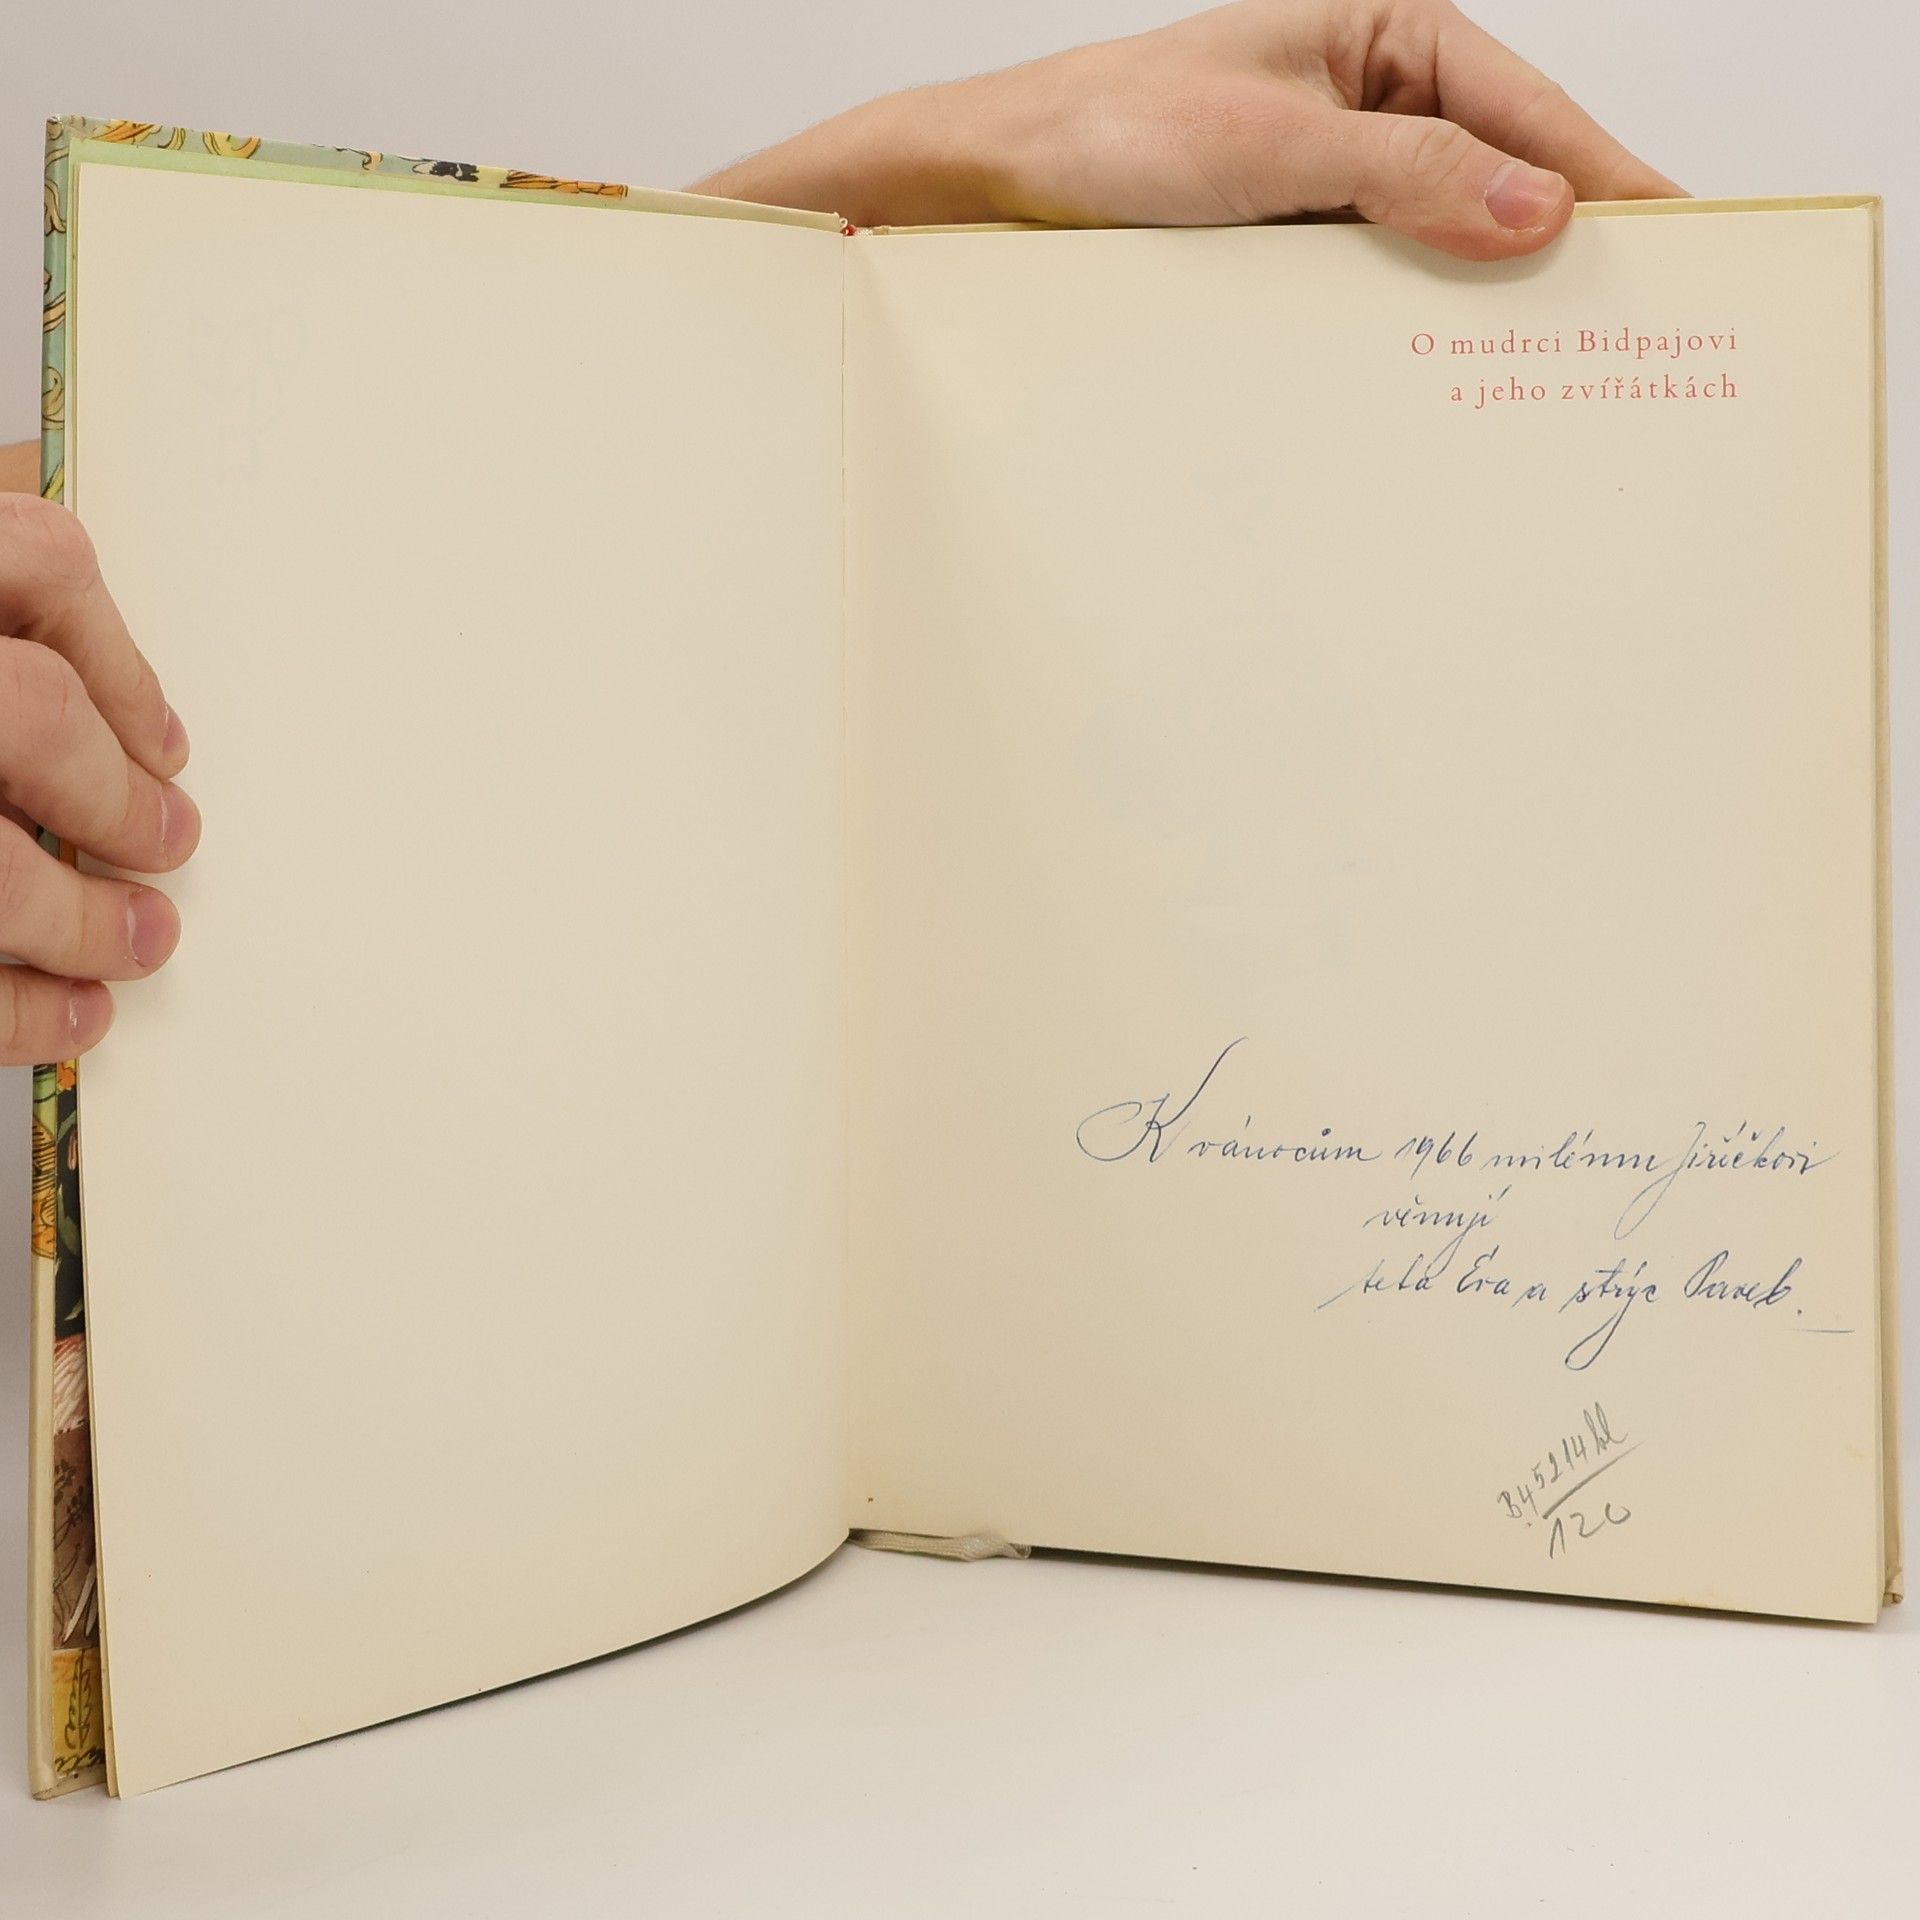 O mudrci Bidpajovi
a jeho zvířátkách
K vánocům 1966 milému Jiříčkovi
věnují
teta Éva a strýc Pavel.
B45214 kl
120